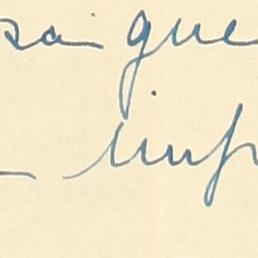 sa que
imp